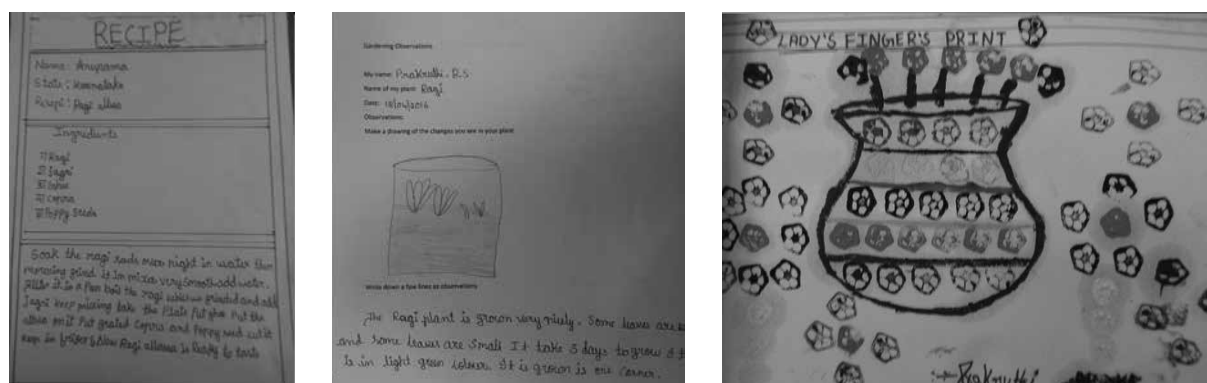 RECIPE
Name: Anupama
State: Karnataka
Recipe: Ragi
Ingredients
1) Ragi
5) Poppy Seeds
Soak the ragi over night in water then
grind it in mixer very smooth add water.
it in a Pan boil the ragi grinded and add
keep mixing take the Plate put ghee Put the
on it Put grated Copra and Poppy seed cut it
keep in Now Ragi is Ready to taste
Gardening Observations
My name: Prakruthi. R.S
Name of my plant: Ragi
Date:
Observations:
Make a drawing of the changes you see in your plant
Write down a few lines as observations
The Ragi plant is grown very nicely. Some leaves are
and some leaves are small It take 3 days to grow
is in light green colour. It is grown is one corner.
LADY'S FINGER'S PRINT
Prakruthi